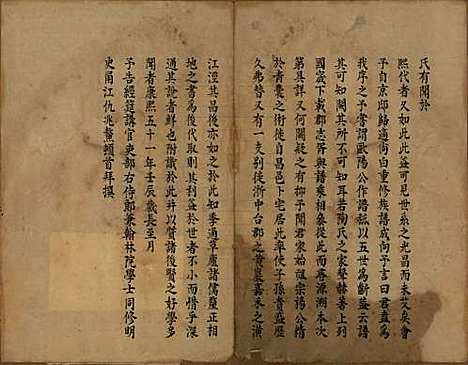 氏有關於
熙代者又如此此益可見世系之光昌而未艾矣會
予自京邸歸適衙自重修族譜成向予言曰君直為
我序之予嘗謂歐陽公作譜祗以五世為斷蓋云譜
其可知闕其所不可知耳若陶氏之家聲赫奕上列
國家下載郡志皆與譜乘相象從此而考源溯本次
第具詳又何闕疑之有抑予聞君家始祖宗揚公精
於青囊之術徙自昌邑卜宅居此率使子孫貴盛歷
久弗替又有一支別徙浙中台郡之黃巖嘉禾之濮
江涇其昌後亦如之於此知李通草廬諸儒窆正相
地之書為後代取則其利益於世者不小而惜乎深
通其說者鮮也附識於此并以質諸後賢之好學多
聞者康熙五十一年壬辰歲長至月
予告經筵講官吏部右侍郎兼翰林院學士同修明
史甬江仇兆鰲頓首拜撰